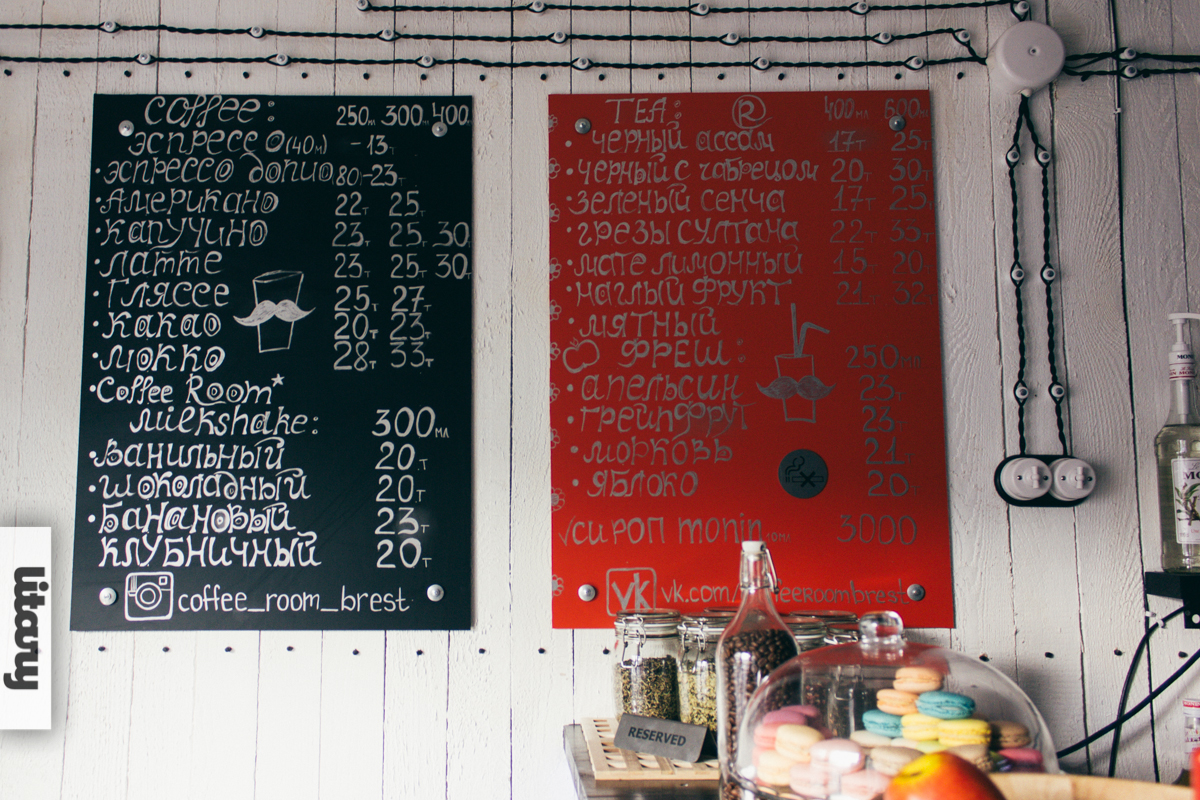 COFFEE: 250мл 300мл 400мл
эспрессо (40м) -13т
•эспрессо допио (80) -23т
•Американо 22т 25т
•капучино 23т 25т 30т
•латте 23т 25т 30т
•гляссе 25т 27т
•какао 20т 23т
•мокко 28т 33т
•Coffee Room*
milkshake: 300мл
•ванильный 20т
•шоколадный 20т
•банановый 23т
клубничный 20т
coffee_room_brest
TEA: R 400мл 600мл
•черный ассам 17т 25т
•черный с чабрецом 20т 30т
•зеленый сенча 17т 25т
•грезы султана 22т 33т
•мате лимонный 15т 20т
•наглый фрукт 21т 32т
•мятный
фреш: 250мл
апельсин 23т
•грейпфрут 23т
•морковь 21т
•яблоко 20т
√сироп monin 3000
vk vk.com/coffeeroombrest
RESERVED
litavy